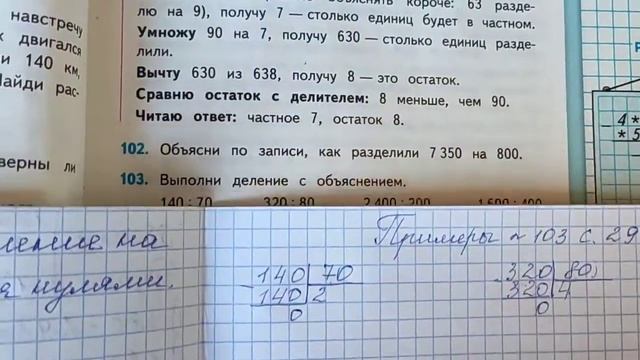 навстречу
двигался
и 140 км,
Найди рас-
верны ли
короче: 63 разде-
лю на 9), получу 7 — столько единиц будет в частном.
Умножу 90 на 7, получу 630 — столько единиц разде-
лили.
Вычту 630 из 638, получу 8 — это остаток.
Сравню остаток с делителем: 8 меньше, чем 90.
Читаю ответ: частное 7, остаток 8.
102. Объясни по записи, как разделили 7 350 на 800.
103. Выполни деление с объяснением.
140 : 70 320 : 80 2 400 : 200 1 600 : 400
4*
*5
на
нулями.
Примеры ~ 103 с. 29
140 70
140 2
0
320 80
320 4
0